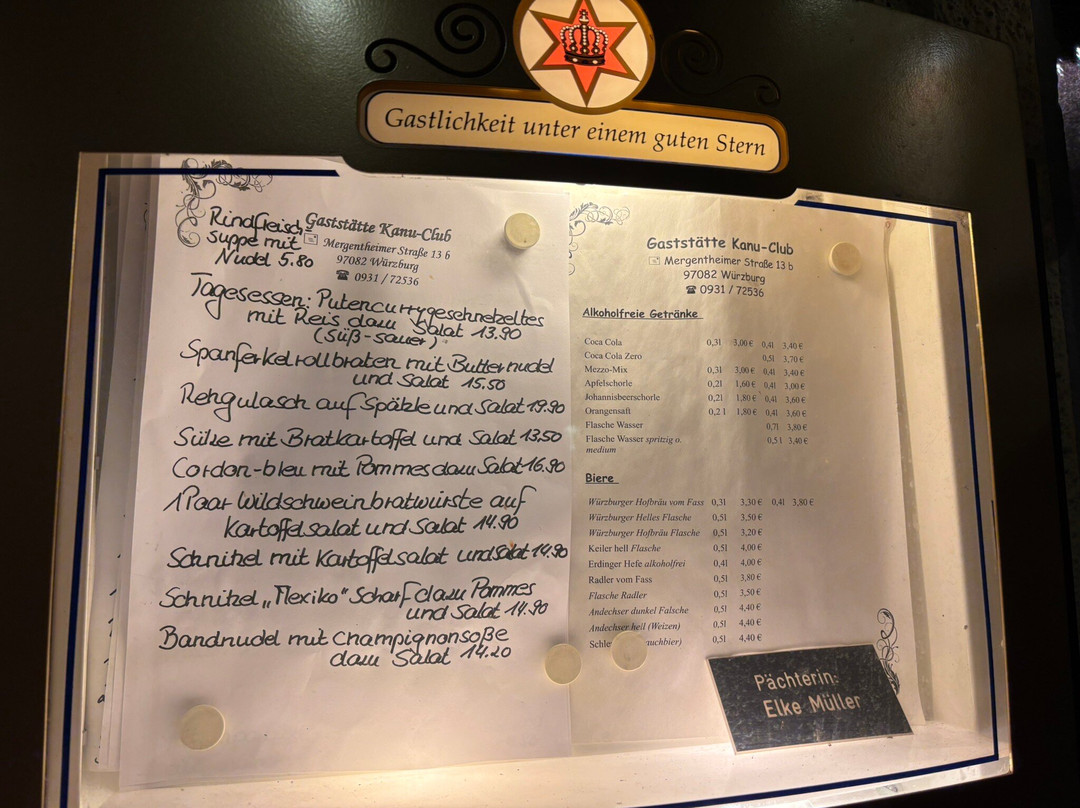 Gastlichkeit unter einem guten Stern
Rindfleisch-
suppe mit
Nudel 5.80
Gaststätte Kanu-Club
Mergentheimer Straße 13 b
97082 Würzburg
☎ 0931 / 72536
Tagesessen: Putencurrygeschnetzeltes
mit Reis dazu Salat 13.90
(süß-sauer)
Spanferkelrollbraten mit Butternudel
und Salat 15.50
Rehgulasch auf Spätzle und Salat 19.90
Sülze mit Bratkartoffel und Salat 13.50
Cordon-bleu mit Pommes dazu Salat 16.90
1 Paar Wildschweinbratwürste auf
Kartoffelsalat und Salat 14.90
Schnitzel mit Kartoffelsalat und Salat 14.90
Schnitzel „Mexiko" Scharf dazu Pommes
und Salat 14.90
Bandnudel mit Champignonsoße
dazu Salat 14.20
Gaststätte Kanu-Club
Mergentheimer Straße 13 b
97082 Würzburg
☎ 0931 / 72536
Alkoholfreie Getränke
Coca Cola 0,3l 3,00 € 0,4l 3,40 €
Coca Cola Zero 0,5l 3,70 €
Mezzo-Mix 0,3l 3,00 € 0,4l 3,40 €
Apfelschorle 0,2l 1,60 € 0,4l 3,00 €
Johannisbeerschorle 0,2l 1,80 € 0,4l 3,60 €
Orangensaft 0,2 l 1,80 € 0,4l 3,60 €
Flasche Wasser 0,7l 3,80 €
Flasche Wasser spritzig o. 0,5 l 3,40 €
medium
Biere
Würzburger Hofbräu vom Fass 0,3l 3,30 € 0,4l 3,80 €
Würzburger Helles Flasche 0,5l 3,50 €
Würzburger Hofbräu Flasche 0,5l 3,20 €
Keiler hell Flasche 0,5l 4,00 €
Erdinger Hefe alkoholfrei 0,4l 4,00 €
Radler vom Fass 0,5l 3,80 €
Flasche Radler 0,5l 3,50 €
Andechser dunkel Falsche 0,5l 4,40 €
Andechser heil (Weizen) 0,5l 4,40 €
Schle uchbier) 0,5l 4,40 €
Pächterin:
Elke Müller